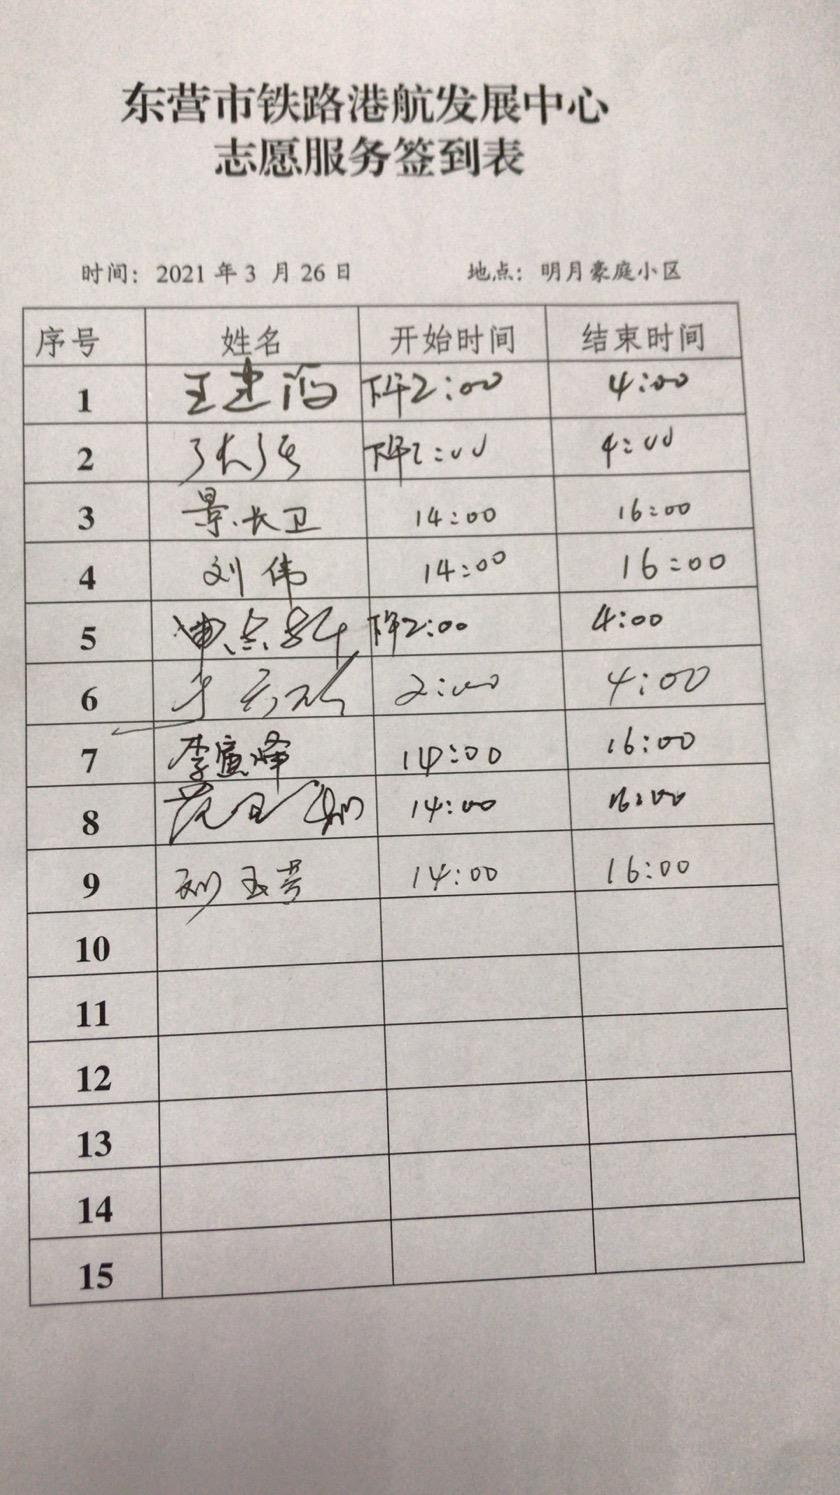 东营市铁路港航发展中心
志愿服务签到表
时间：2021 年 3 月 26 日 地点：明月豪庭小区
序号 姓名 开始时间 结束时间
1 王建 下午2:00 4:00
2 下午2:00 4:00
3 景长卫 14:00 16:00
4 刘伟 14:00 16:00
5 下午2:00 4:00
6 2:00 4:00
7 李寅峰 14:00 16:00
8 14:00 16:00
9 刘玉芳 14:00 16:00
10
11
12
13
14
15